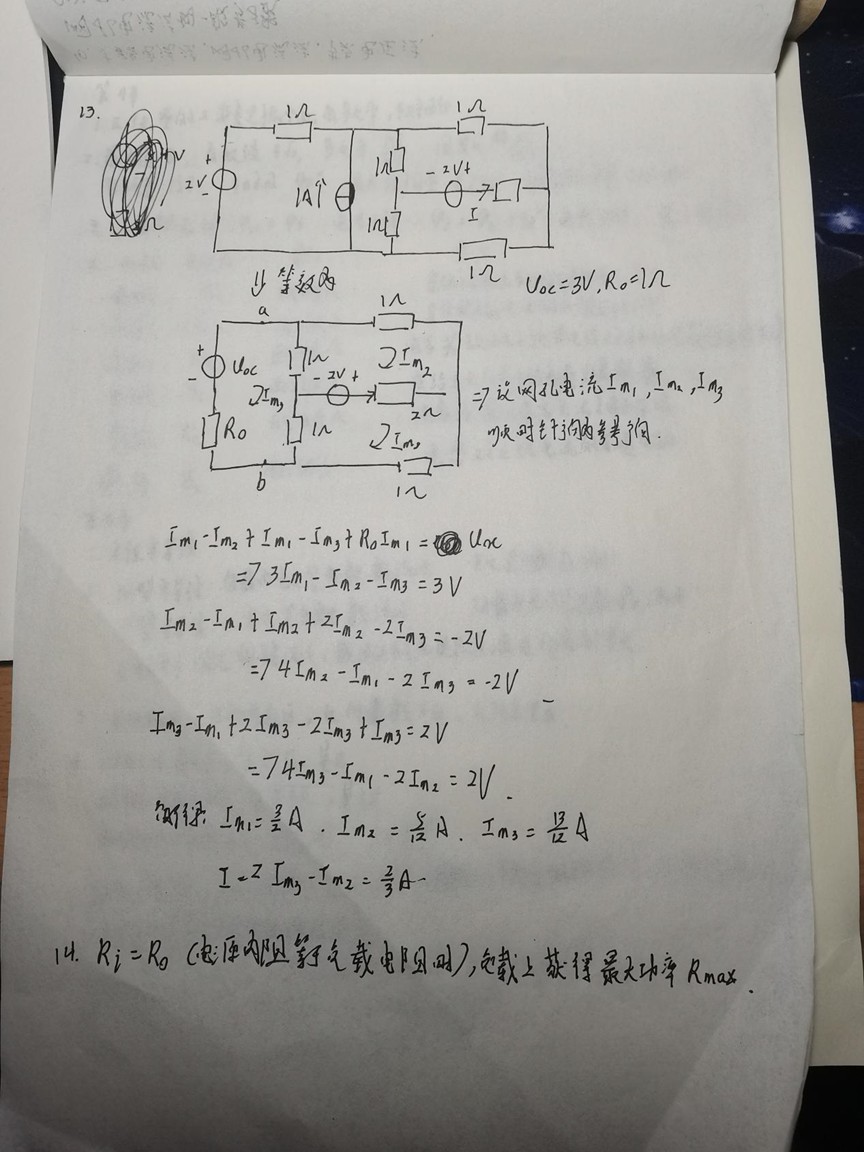 13.
1Ω 1Ω
+ 2V - 1A↑ 1Ω - 2V + I
1Ω 1Ω
⇓ 等效为 Uoc=3V, R₀=1Ω
a 1Ω
+ - Uoc 1Ω Im₂
Im₃ - 2V + 2Ω ⇒ 设网孔电流 Im₁, Im₂, Im₃
R₀ 1Ω Im₃ 顺时针方向为参考方向.
b 1Ω
Im₁-Im₂+Im₁-Im₃+R₀Im₁= Uoc
⇒ 3Im₁-Im₂-Im₃=3V
Im₂-Im₁+Im₂+2Im₂-2Im₃=-2V
⇒ 4Im₂-Im₁-2Im₃=-2V
Im₃-Im₁+2Im₃-2Im₃+Im₃=2V
⇒ 4Im₃-Im₁-2Im₂=2V.
解得: Im₁=3/2 A. Im₂=5/12 A. Im₃=13/12 A
I=Im₃-Im₂=2/3 A
14. Ri=R₀ (电压内阻等于负载电阻时), 负载上获得最大功率 Rmax.